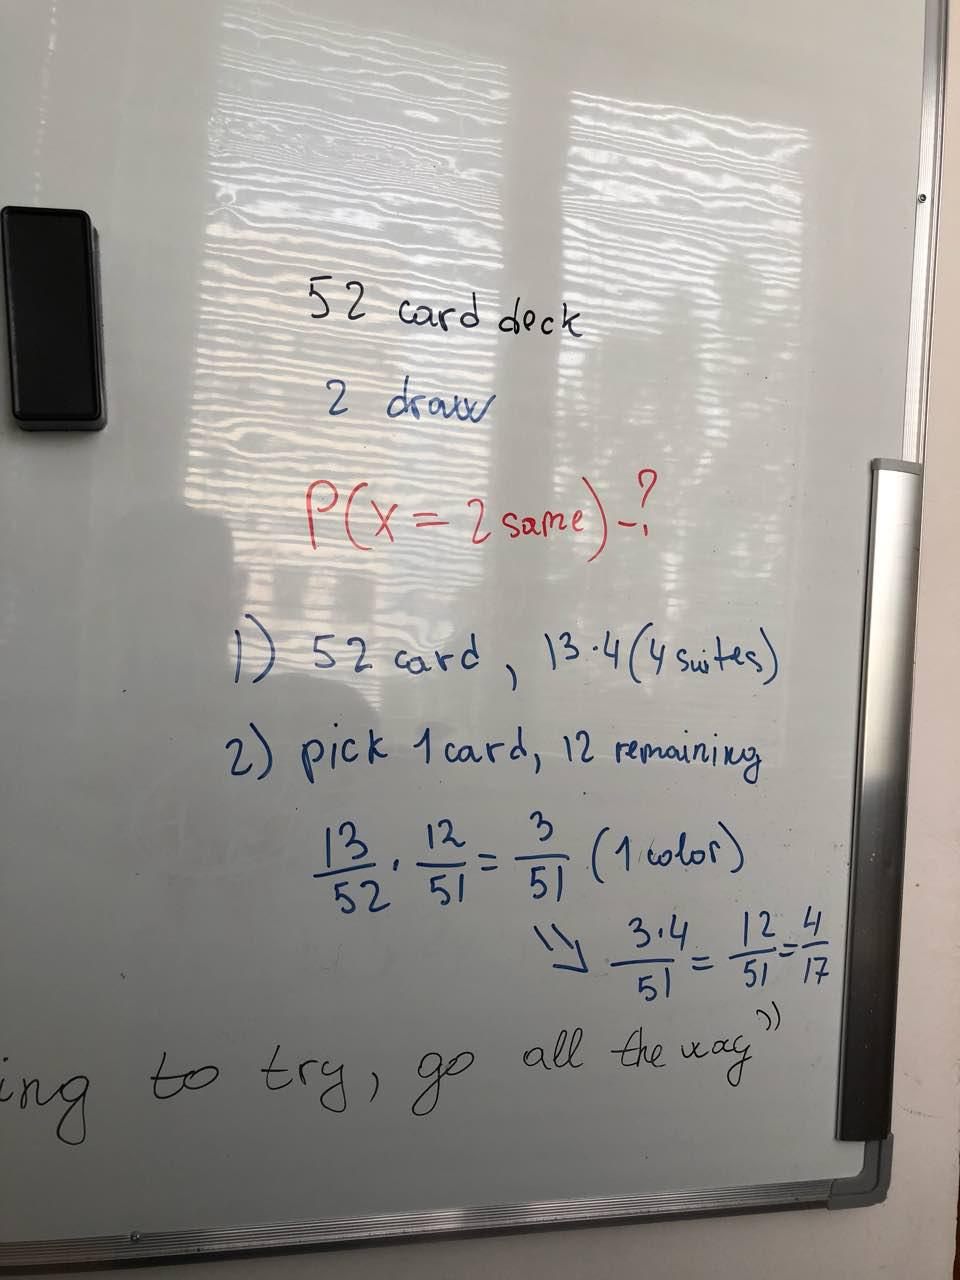 52 card deck
2 draw
P(x = 2 same) - ?
1) 52 card, 13·4 (4 suites)
2) pick 1 card, 12 remaining
13/52 · 12/51 = 3/51 (1 color)
⇘ 3·4/51 = 12/51 = 4/17
ing to try, go all the way"